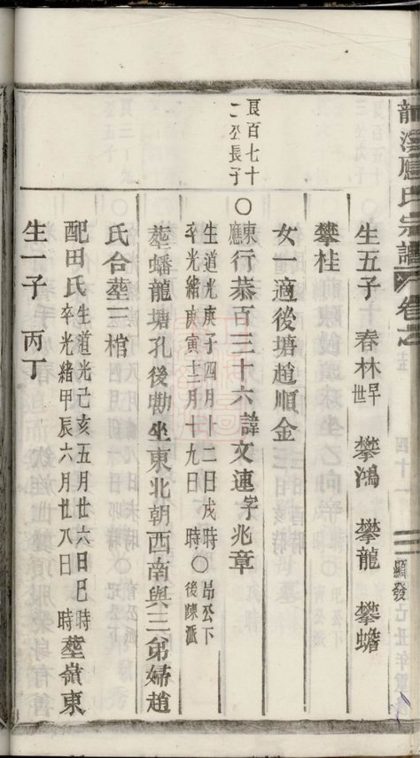 龍溪應氏宗譜 卷之
顯發
生五子 春林早世 攀鴻 攀龍 攀蟾
攀桂
女一適後塘趙順金
良百七十二公長子
○東廳行恭百三十六諱文連字兆章
生道光庚子四月十二日戌時○昂公下
卒光緒庚寅十二月十九日 時○後陳派
塟蟠龍塘孔後勘坐東北朝西南與三弟婦趙
氏合塟三棺
配田氏生道光己亥五月廿六日巳時卒光緒甲辰六月廿八日 時塟嶺東
生一子 丙丁